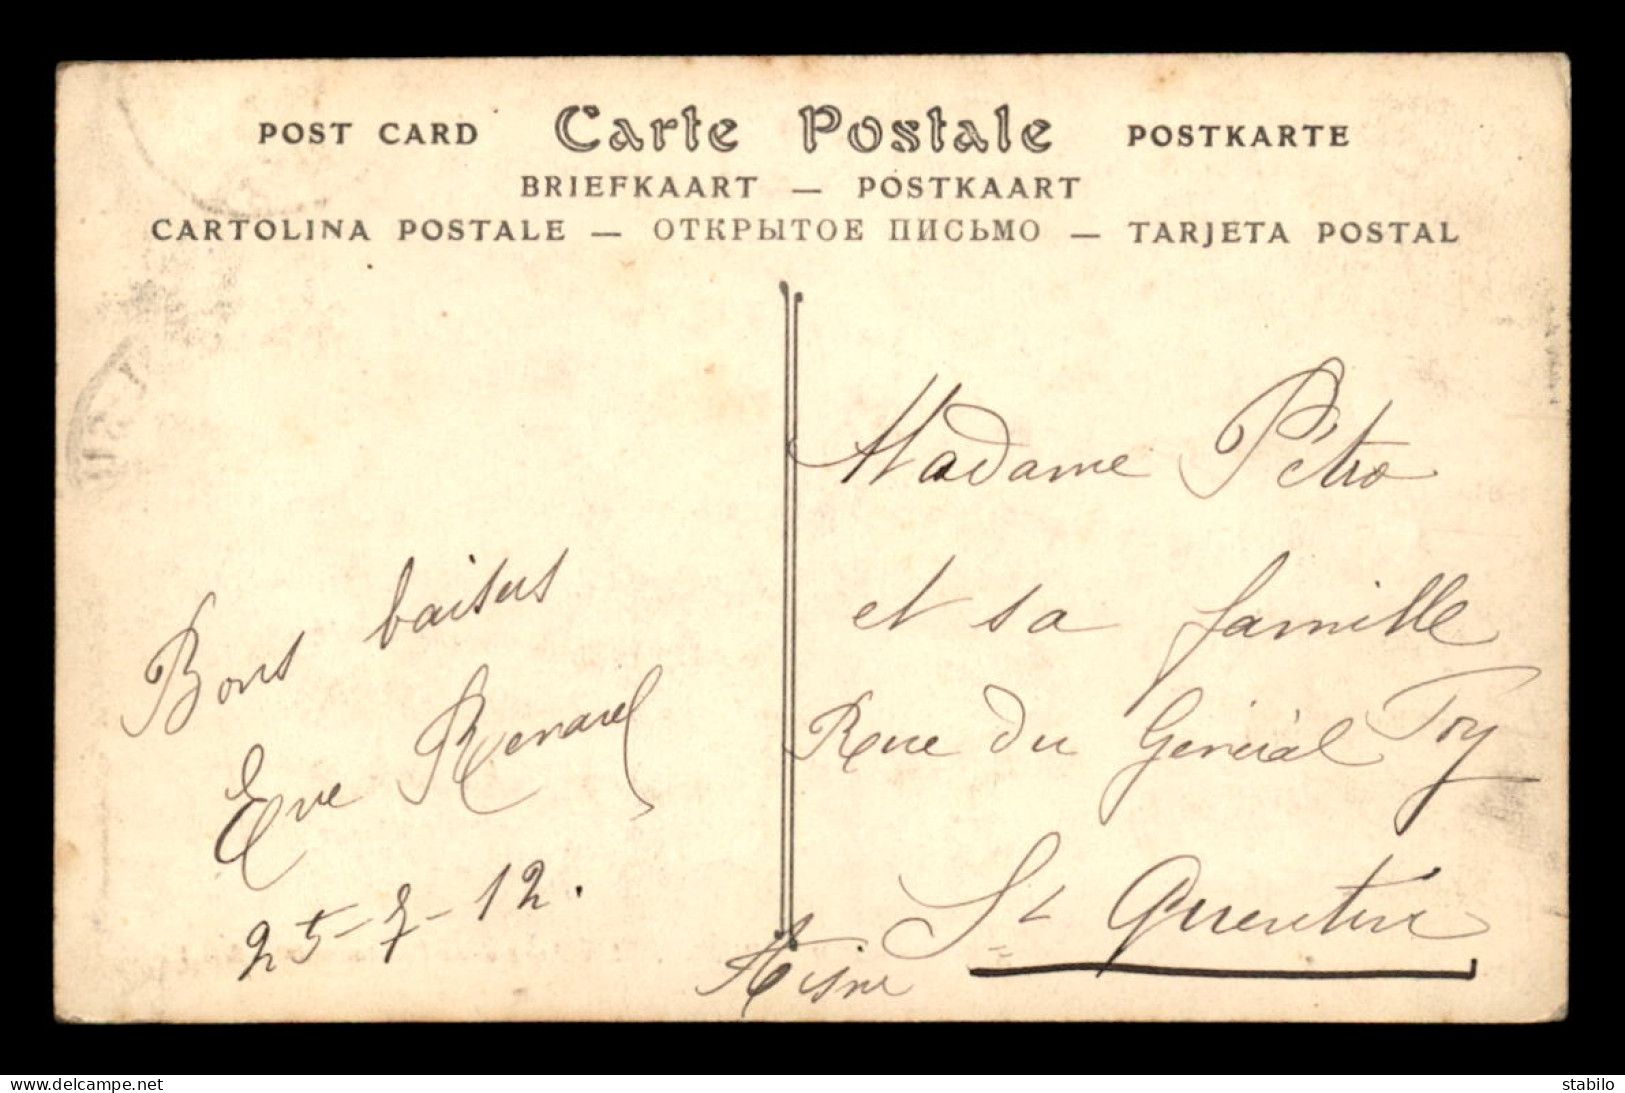 POST CARD Carte Postale POSTKARTE
BRIEFKAART — POSTKAART
CARTOLINA POSTALE — ОТКРЫТОЕ ПИСЬМО — TARJETA POSTAL
Bons baisers
Eve Renard
25-7-12.
Madame Pétro
et sa famille
Rue du Général Foy
St Quentin
Aisne
www.delcampe.net
stabilo